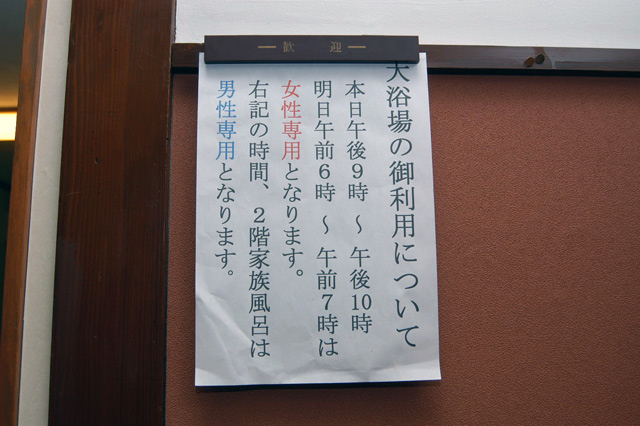 歓迎
大浴場の御利用について
本日午後9時 ～ 午後10時
明日午前6時 ～ 午前7時は
女性専用となります。
右記の時間、2階家族風呂は
男性専用となります。